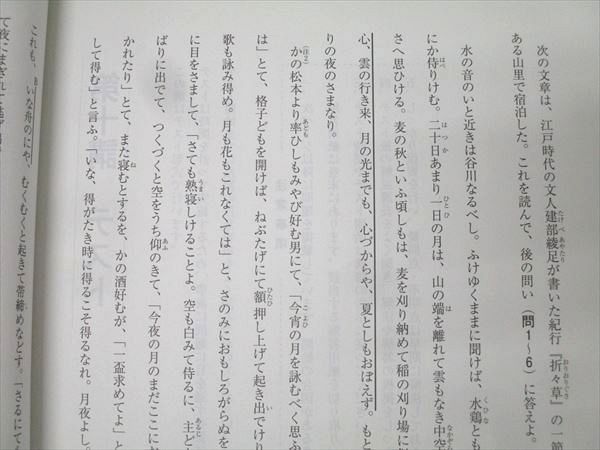 次の文章は、江戸時代の文人建部綾足が書いた紀行『折々草』の一節
ある山里で宿泊した。これを読んで、後の問い（問1～6）に答えよ。
水の音のいと近きは谷川なるべし。ふけゆくままに聞けば、水鶏とも
にか侍りけむ。二十日あまり一日の月は、山の端を離れて雲もなき中空
さへ思ひける。麦の秋といふ頃しもは、麦を刈り納めて稲の刈り場に
心、雲の行き来、月の光までも、心づからや、夏としもおぼえず。もと
りの夜のさまなり。
かの松本より率ひしもみやび好む男にて、「今宵の月を詠むべく思ふ
は」とて、格子どもを開けば、ねぶたげにて額押し上げて起き出でけり
歌も詠み得め。月も花もこれなくては」と、さのみにおもしろがらぬを
に目をさまして、「さても熟寝しけることよ。空も白みて侍るに、主ど
ばりに出でて、つくづくと空をうち仰のきて、「今夜の月のまだここに
かれたり」とて、また寝むとするを、かの酒好むが、「一盃求めてよ」と
して得む」と言ふ。「いな、得がたき時に得るこそ得るなれ。月夜よし。
これも、いな舟のにや、むくむくと起きて帯締めなどす。「さるにても
て夜にまぎれて